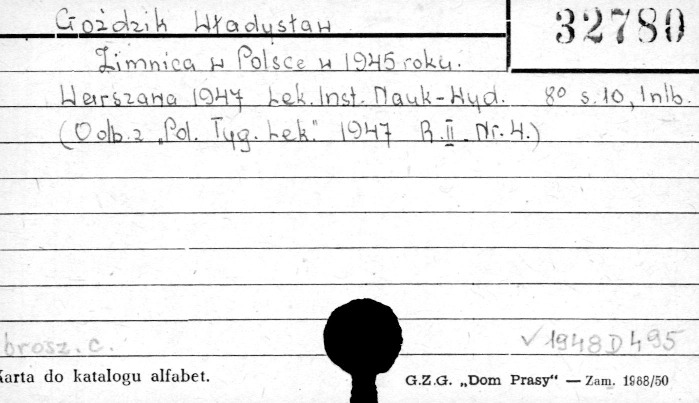 Goździk Władysław
32780
Zimnica w Polsce w 1945 roku.
Warszawa 1947 Lek. Inst. Nauk-Wyd. 8° s. 10, 1 nlb.
(Odb. z „Pol. Tyg. Lek." 1947 R. II. Nr. 4.)
brosz. c.
✓ 1948 D 495
Karta do katalogu alfabet.
G.Z.G. „Dom Prasy“ — Zam. 1988/50